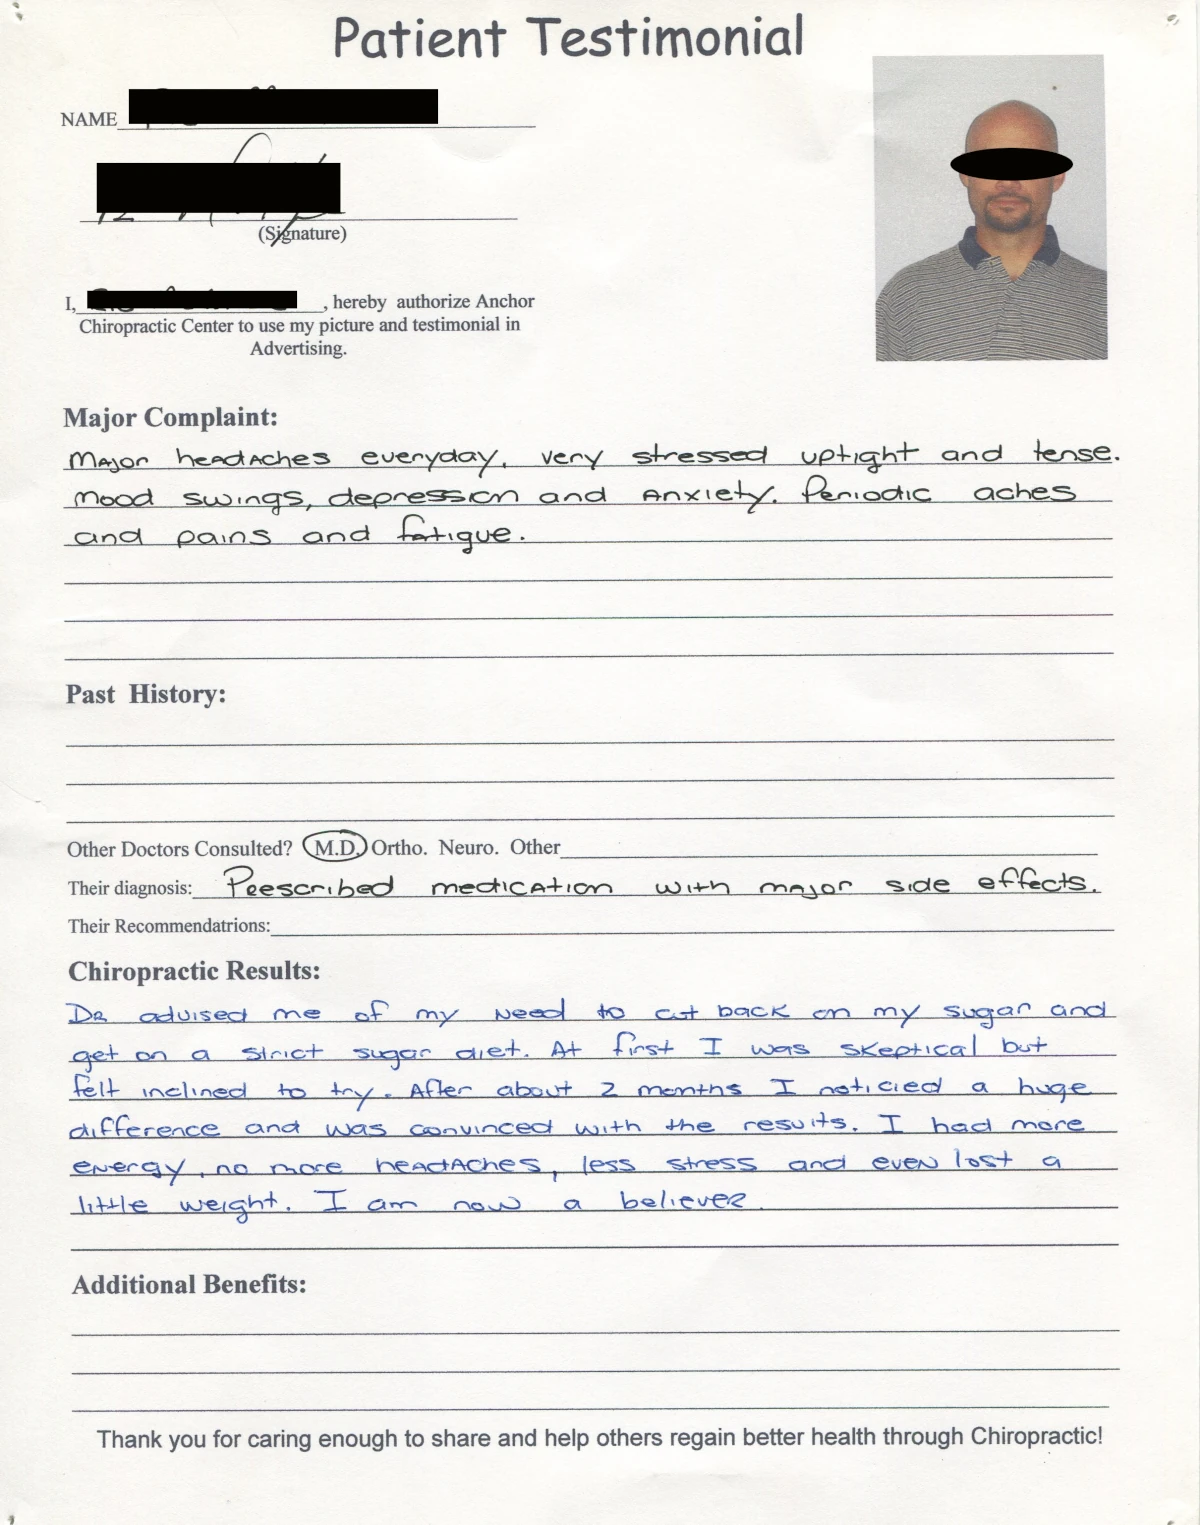 Patient Testimonial
NAME
(Signature)
I, , hereby authorize Anchor
Chiropractic Center to use my picture and testimonial in
Advertising.
Major Complaint:
Major headaches everyday, very stressed uptight and tense.
Mood swings, depression and Anxiety. Periodic aches
and pains and fatigue.
Past History:
Other Doctors Consulted? M.D. Ortho. Neuro. Other
Their diagnosis: Prescribed medication with major side effects.
Their Recommendatrions:
Chiropractic Results:
DR advised me of my need to cut back on my sugar and
get on a strict sugar diet. At first I was skeptical but
felt inclined to try. After about 2 months I noticied a huge
difference and was convinced with the results. I had more
energy, no more headaches, less stress and even lost a
little weight. I am now a believer.
Additional Benefits:
Thank you for caring enough to share and help others regain better health through Chiropractic!